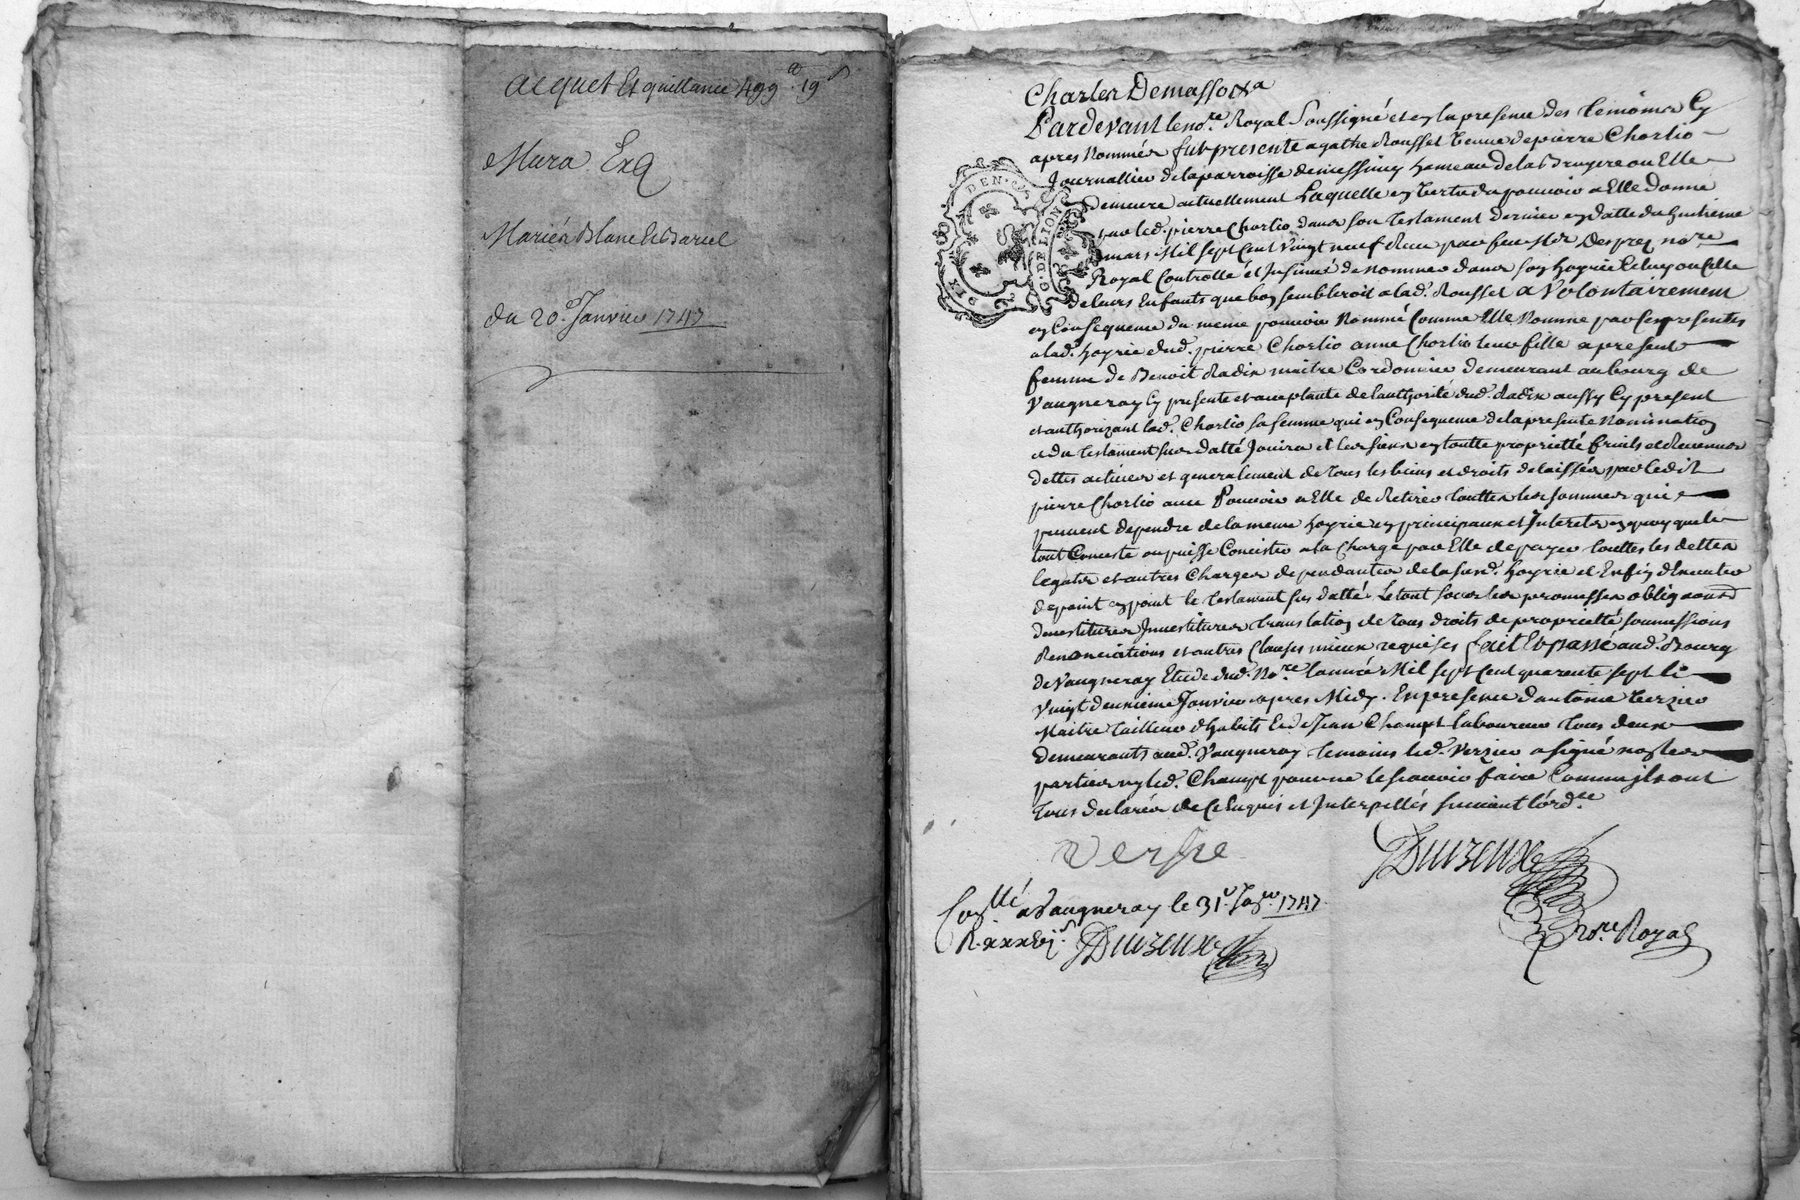 acquet Et quittance 499 ₶ 19 s
Mura Exq
Mariés Blanc et Bariel
du 20.e Janvier 1747
Charles Demasso
Pardevant le no.re Royal Soussigné et en la presence des temoins Cy
apres Nommés fut presente agathe Rousset veuve de pierre Chorlio
Journallier de la parroisse de messimy hameau de la Bruyere ou Elle
Demeure actuellement Laquelle en Vertu du pouvoir a Elle donné
par led. pierre Chorlio dans son testament dernier en datte du huitieme
mars Mil sept Cent Vingt neuf Receu par feu Me Desprez no.re
Royal Controllé et Insinué de nommer dans son hoyrie Celuy ou Celle
de leurs Enfants que bon sembleroit a lad. Rousset a Volontairement
en Consequence du meme pouvoir Nommé Comme Elle Nomme par Ces presentes
a lad. hoyrie dud. pierre Chorlio anne Chorlio leur fille a present
femme de Benoit Radix maitre Cordonnier demeurant au bourg de
Vaugneray Cy presente et acceptante de l'authorité dud. Radix aussy Cy present
et authorizant lad. Chorlio sa femme qui en Consequence de la presente Nomination
et du testament sus datté Jouira et les siens en toutte proprietté fruits et Revenus
dettes actives et generalement de tous les biens et droits delaissés par ledit
pierre Chorlio avec Pouvoir a Elle de Retirer touttes les sommes qui
peuvent dependre de la meme hoyrie en principaux et Interets en quoy que le
tout Conciste ou puisse Concister a la Charge par Elle de payer touttes les dettes
legats et autres Charges dependantes de la susd. hoyrie et Enfin d'Executer
de point en point le testament sus datté Le tout sous les promesses obligaons
devestitures Investitures translation de tous droits de proprietté soumissions
Renonciations et autres Clauses mieux requises fait Et passé aud. Bourg
de Vaugneray Etude dud. No.re l'année Mil sept Cent quarente sept le
Vingt deuxieme Janvier apres Midy. En presence d'antoine Verzier
Maitre tailleur d'habits Et de Jean Champt laboureur tous deux
demeurants aud. Vaugneray temoins led. Verzier a signé non les
parties ny led. Champt pour ne le scavoir faire Comme ils ont
tous declarés de Ce Enquis et Interpellés suivant l'ord.ce
DEN
G. DE LION
Versie
Duvzeux
no.re Royal
Con.llé a Vaugneray le 31.e Jan.er 1747
R. xxxvi s
Duvzeux